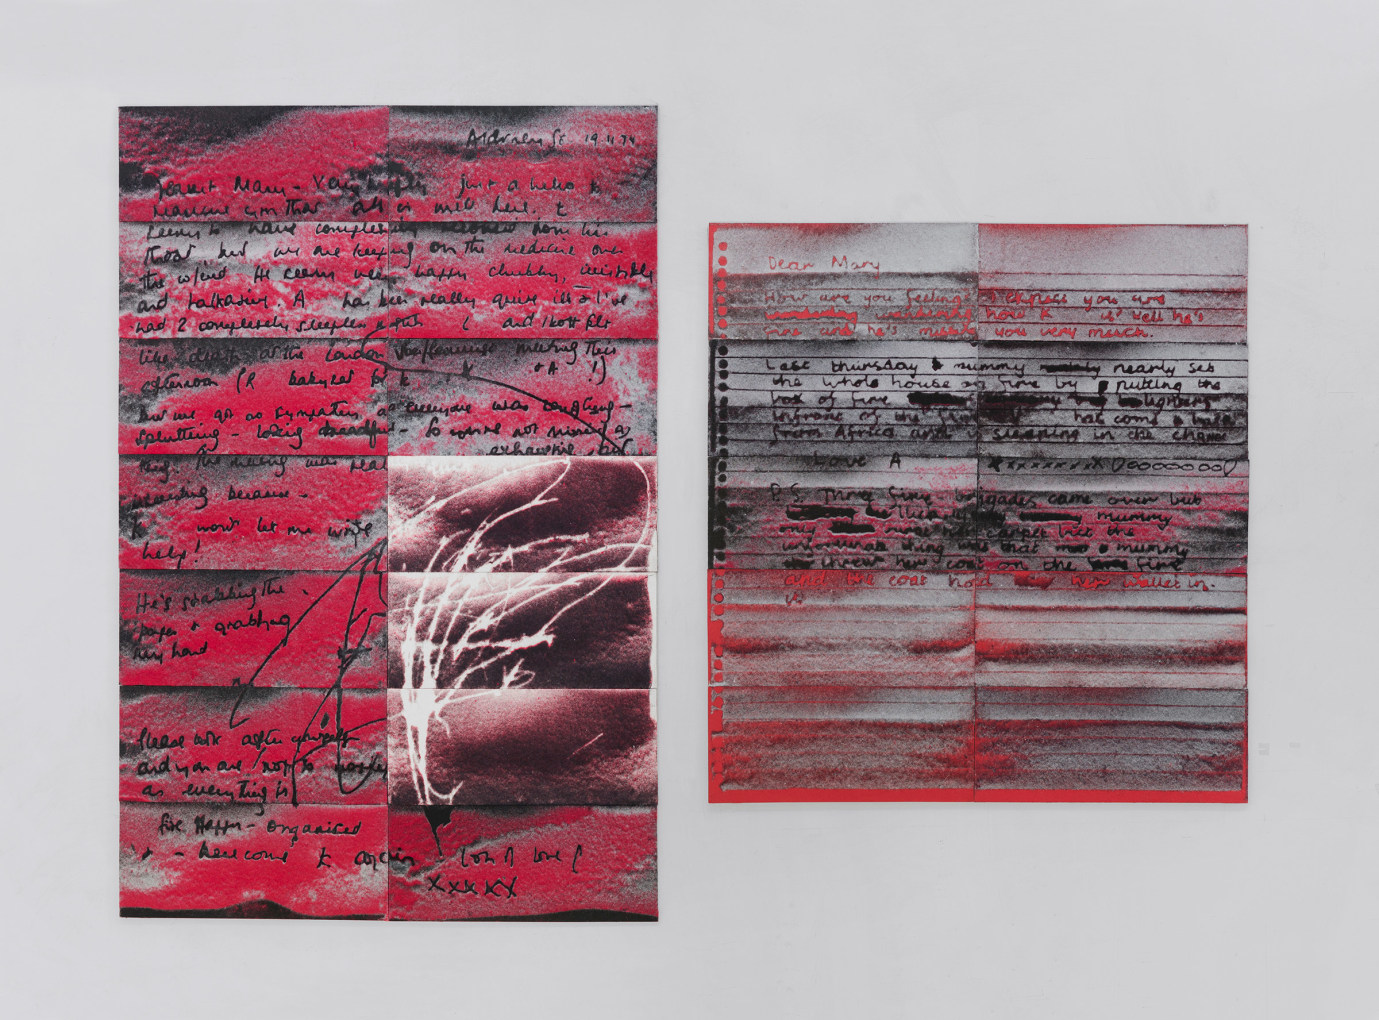 19.11.74
Dearest Mary - Very briefly just a hello to
reassure you that all is well here. K
seems to have completely recovered from his
throat, but we are keeping on the medicine over
the w/end. He seems well - happy chubby, invisible
and talkative. A has been really quite ill & I've
had 2 completely sleepless nights ( and I both felt
like death at the London meeting this
afternoon (R babysat for K + A !)
but we got no sympathy as everyone was coughing -
spluttering - looking dreadful - So were not missing as
exhaustive but
King. The meeting was real
because -
K won't let me write
help!
He's snatching the
paper & grabbing
my hand
Please look after yourself
and you are not to worry
as everything is
fine Happy - organised
- here come K again - lots of love
xxxxx
Dear Mary
How are you feeling I expect you are
wondering how K is well he's
fine and he's missing you very much.
Last thursday mummy nearly set
the whole house on fire by putting the
box of fire lighters
infront of the fire has come back
from Africa and is sleeping in the
Love A xxxxxxxx oooooooo
P.S. Three fire brigades came over but
mummy
only carpet but the
unfortunate thing was that mummy
threw her coat on the fire
and the coat had her wallet in
it